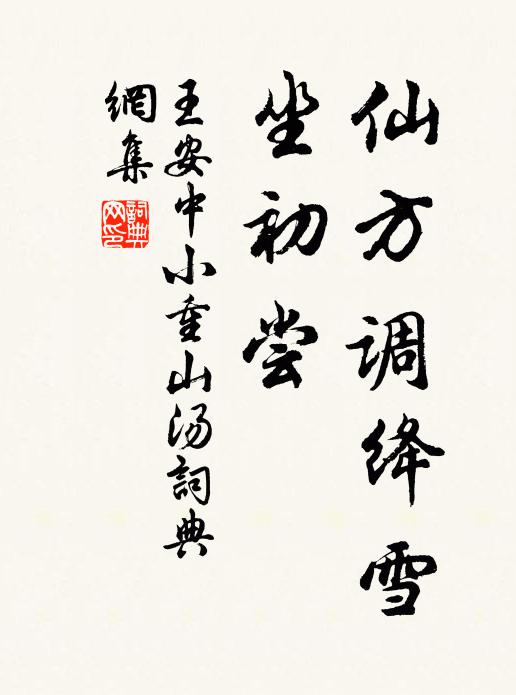 仙方调绛雪
坐初尝
王安中小重山汤詞典
網集
詞典网印